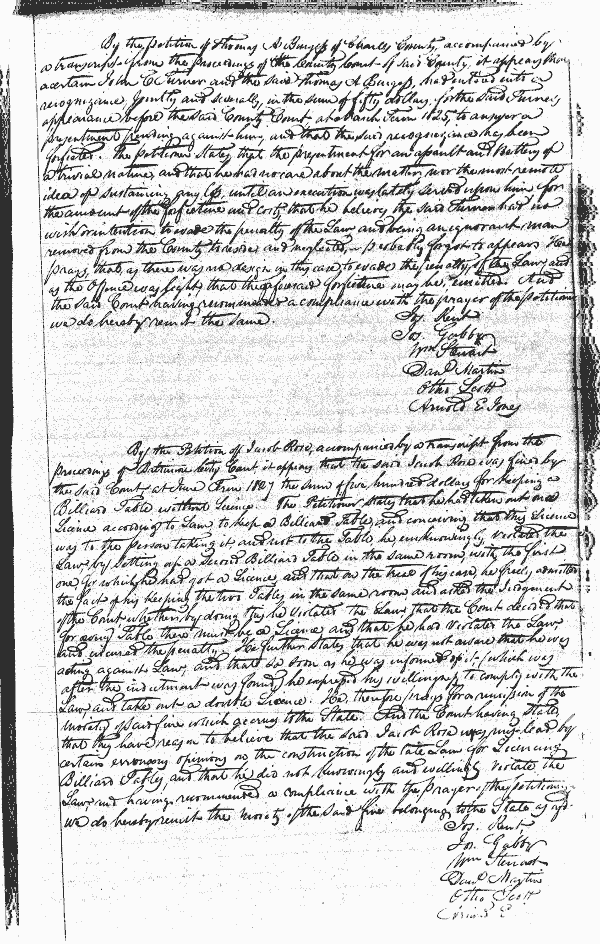 By the petition of Thomas A Burgess of Charles County, accompanied by
a transcript from the proceedings of the County Court of said County, it appears that
a certain John C Turner and the said Thomas A Burgess, had entered into a
recognizance, jointly and severally, in the sume of fifty dollars, for the said Turner's
appearance before the said County Court at March Term 1825, to answer a
presentment pending against him, and that the said recognizance has been
forfeited. The petitioner states, that the presentment for an assault and Battery of
a trivial nature, and that he had no care about the matter, nor the most remote
idea of sustaining any loss, until an execution was lately served upon him for
the amount of the forfeiture and costs, that he believes the said Turner had no
wish or intention to evade the penalty of the Law, and being an ignorant man
removed from the County to reside and neglected, or probably forgot to appear. He
prays, that, as there was no design in this case to evade the penalty of the Law, and
as the Offence was light, that the aforesaid forfeiture may be remitted. And
the said Court having recommended a compliance with the prayer of the petitioner
we do hereby remit the same.
Jos. Kent
Jos. Gabby
Wm Stewart
Danl Martin
Otho Scott
Arnold E Jones
By the Petition of Jacob Rose, accompanied by a transcript from the
proceedings of Baltimore City Court it appears that the said Jacob Rose was fined by
the said Court, at June Term 1827 the sume of five hundred dollars for keeping a
Billiard Table without License. The Petitioner states that he had taken out one
Licence according to Law to keep a Billiard Table, and conceiving that this Licence
was to the person taking it and not to the Table, he unknowingly violated the
Law, by setting up a Second Billiard Table in the same room with the first
one for which he had got a Licence, and that on the trial of his case, he freely admitted
the fact of his keeping the two Tables in the same room and asked the Judgement
of the Court whether by doing this he violated the Law, that the Court decided that
for every Table there must be a Licence and that he had violated the Law,
and incurred the penalty. He further states that he was not aware that he was
acting against Law, and that so soon as he was informed of it (which was
after the indictment was found) he expressed his willingness to comply with the
Law, and take out a double Licence. He, therefore prays for a remission of the
moiety of said fine which accrues to the State. And the Court having stated
that they have reason to believe that the said Jacob Rose was mislead by
certain erroneous opinions on the construction of the late Law for Licencing
Billiard Tables, and that he did not knowingly and willingly violate the
Law, and having recommended a compliance with the prayer of the petitioner
we do hereby remit the moiety of the said fine belonging to the State as afd.
Jos. Kent
Jos. Gabby
Wm Stewart
Danl Martin
Otho Scott